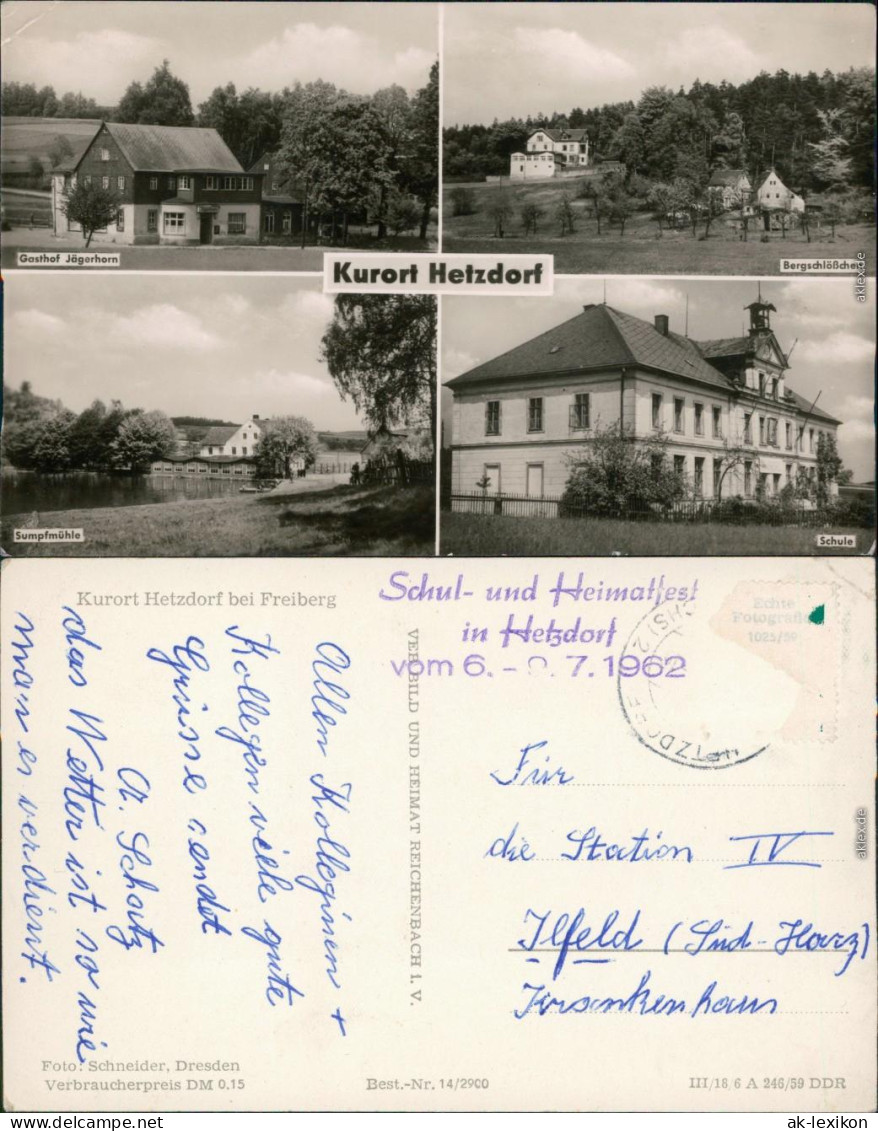 Gasthof Jägerhorn
Bergschlößchen
Kurort Hetzdorf
Sumpfmühle
Schule
aklex.de
Kurort Hetzdorf bei Freiberg
Schul- und Heimatfest
in Hetzdorf
vom 6.- 7.1962
Echte
Fotografie
1025/59
HETZDORF
VEB BILD UND HEIMAT REICHENBACH I. V.
Allen Kolleginen +
Kollegen viele gute
Grüsse sendet
A. Schatz
das Wetter ist so wie
man es verdient.
Für
die Station IV
Ilfeld (Süd-Harz)
Krankenhaus
aklex.de
Foto: Schneider, Dresden
Verbraucherpreis DM 0.15
Best.-Nr. 14/2900
III/18/6 A 246/59 DDR
ak-lexikon